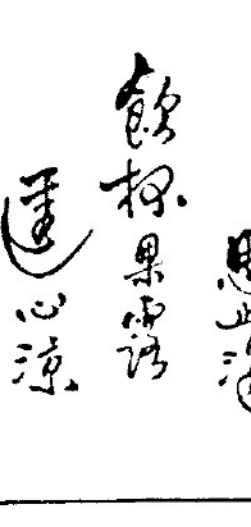 飲杯果露
透心涼